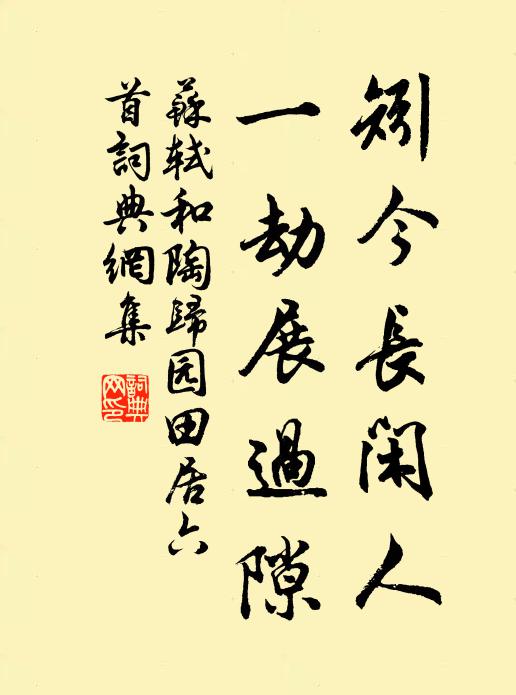 矧今長闲人
一劫展過隙
蘇轼和陶歸园田居六
首詞典網集
詞典
网印